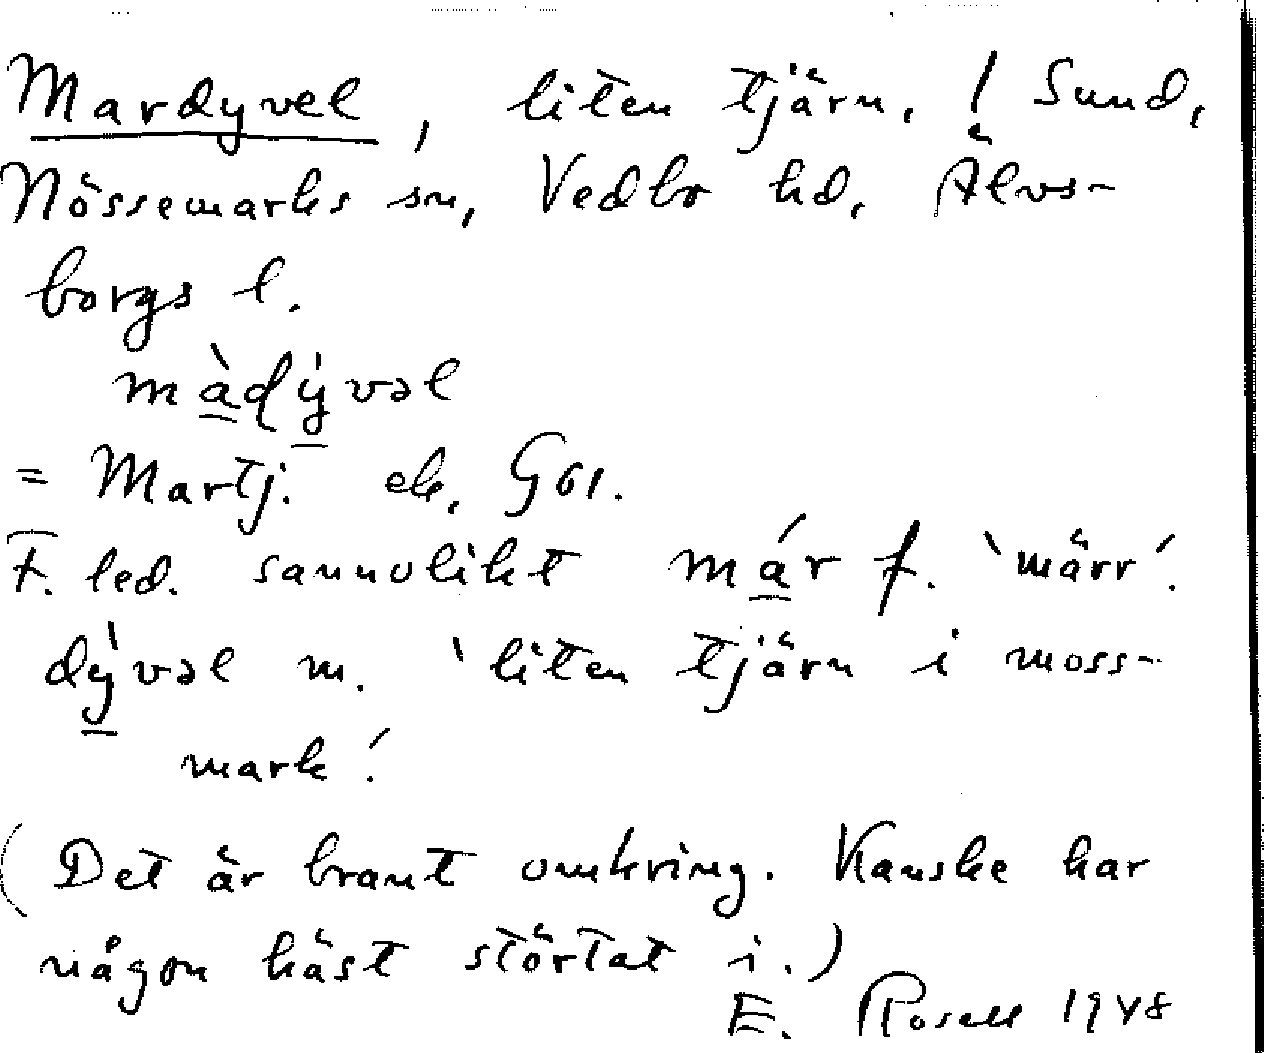 Mardyvel, liten tjärn, / Sund,
Nössemarks sn, Vedbo hd, Älvs-
borgs l.
màdý vəl
= Martj. ek. G61.
F. led. sannolikt már f. 'märr'.
dývəl m. 'liten tjärn i moss-
mark'.
(Det är brant omkring. Kanske har
någon häst störtat i.)
E. Rosell 1948